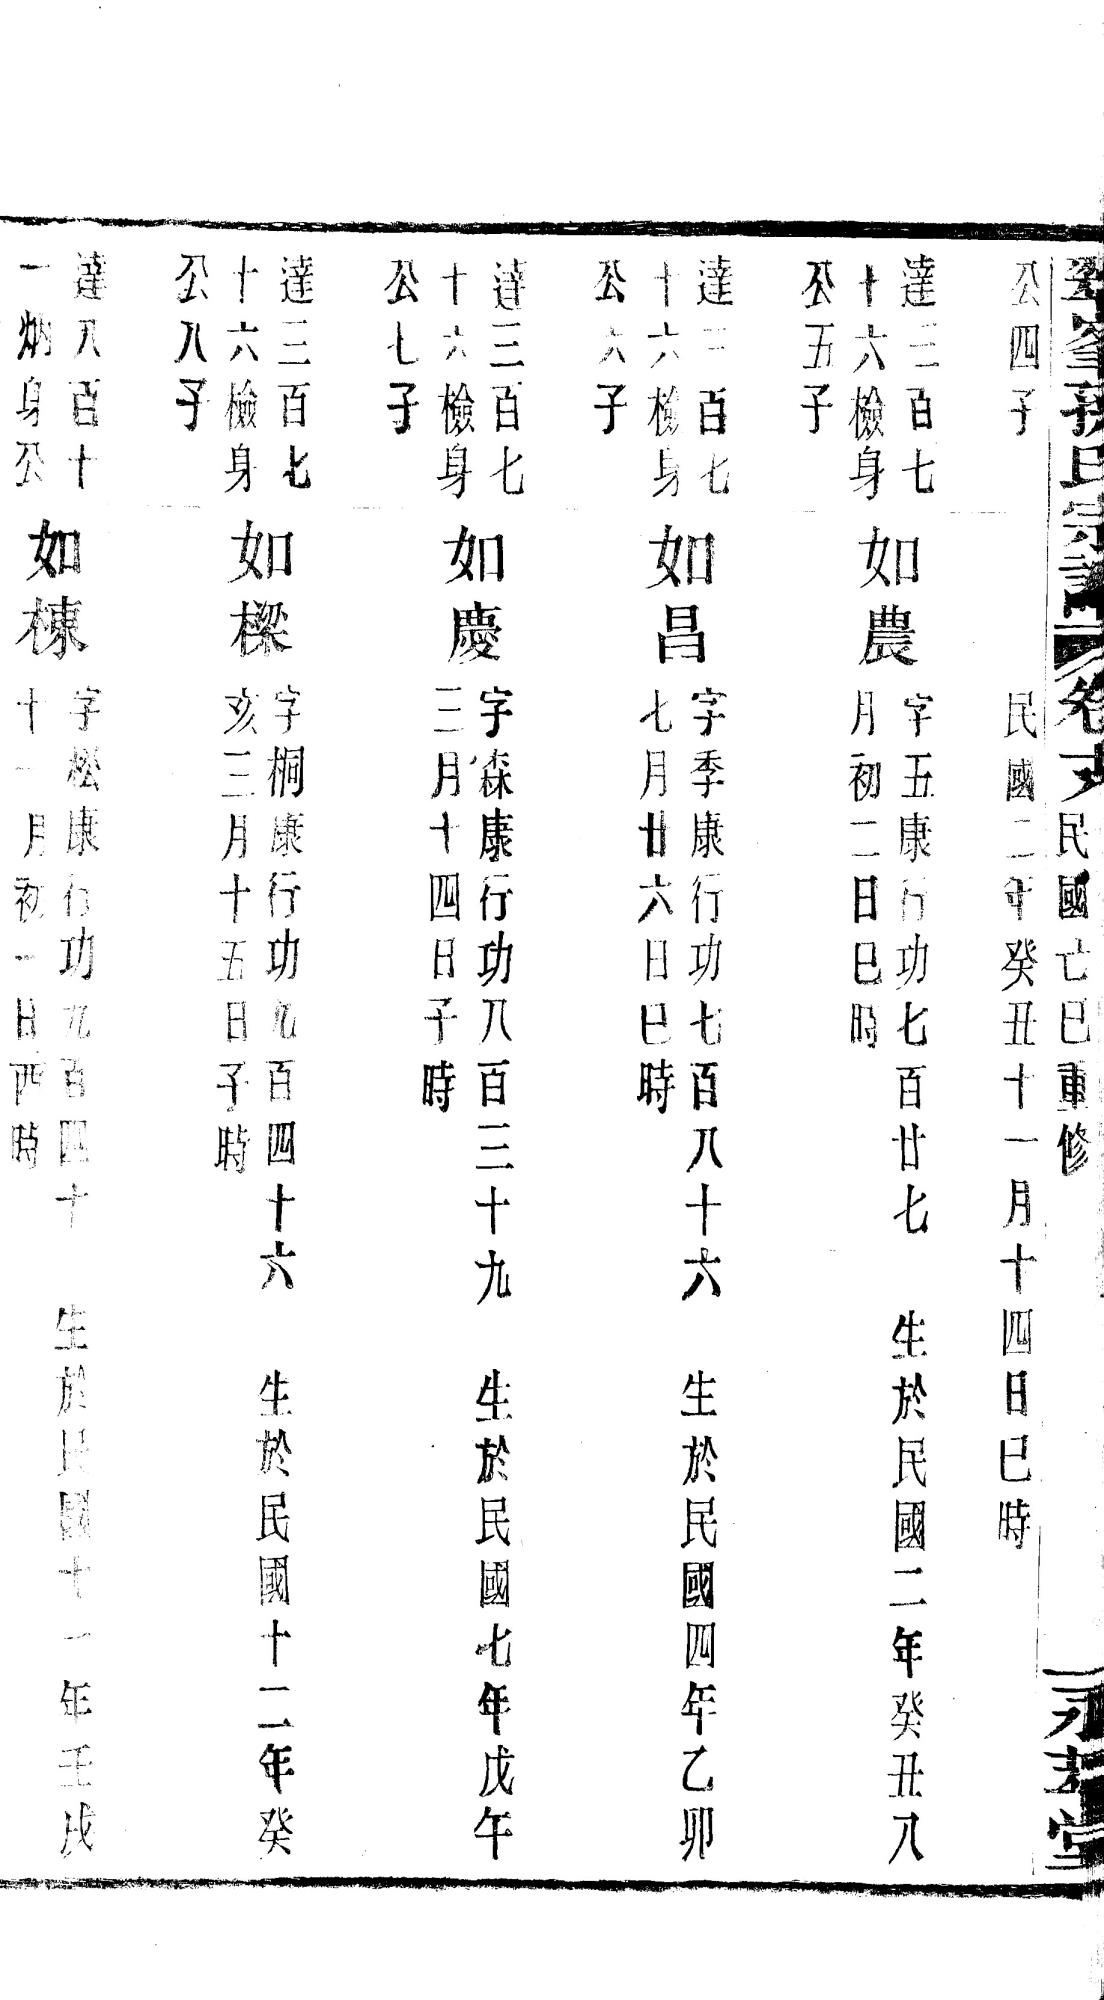 峯孫氏宗譜 卷 民國亡巳重修 堂
公四子
民國二年癸丑十一月十四日巳時
達三百七
十六檢身
公五子
如農
字五康行功七百廿七 生於民國二年癸丑八
月初二日巳時
達三百七
十六檢身
公六子
如昌
字季康行功七百八十六 生於民國四年乙卯
七月廿六日巳時
達三百七
十六檢身
公七子
如慶
字森康行功八百三十九 生於民國七年戊午
三月十四日子時
達三百七
十六檢身
公八子
如樑
字桐康行功九百四十六 生於民國十二年癸
亥三月十五日子時
達八百十
一炳身公
如棟
字松康行功九百四十 生於民國十一年壬戌
十一月初一日酉時